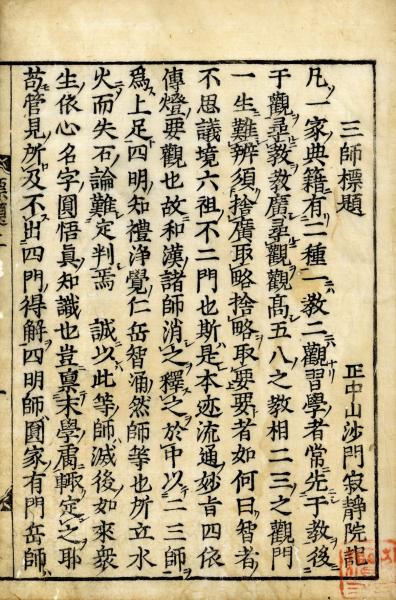 三師標題
正中山沙門寂靜院記
凡一家典籍有二種一教二觀習學者常先于教後
于觀尋教教廣尋觀觀高五八之教相二三之觀門
一生難辨須捨廣取略捨略取要要者如何曰智者
不思議境六祖不二門也斯是本迹流通妙旨四依
傳燈要觀也故和漢諸師消之釋之於中以二三師
爲上足四明知禮淨覺仁岳智涌然師等也所立水
火而失石論難定判焉　誠以此等師滅後如來衆
生依心名字圓悟眞知識也豈禀末學膚輙定之耶
苟管見所及不出四門得解四明師圓家有門岳師